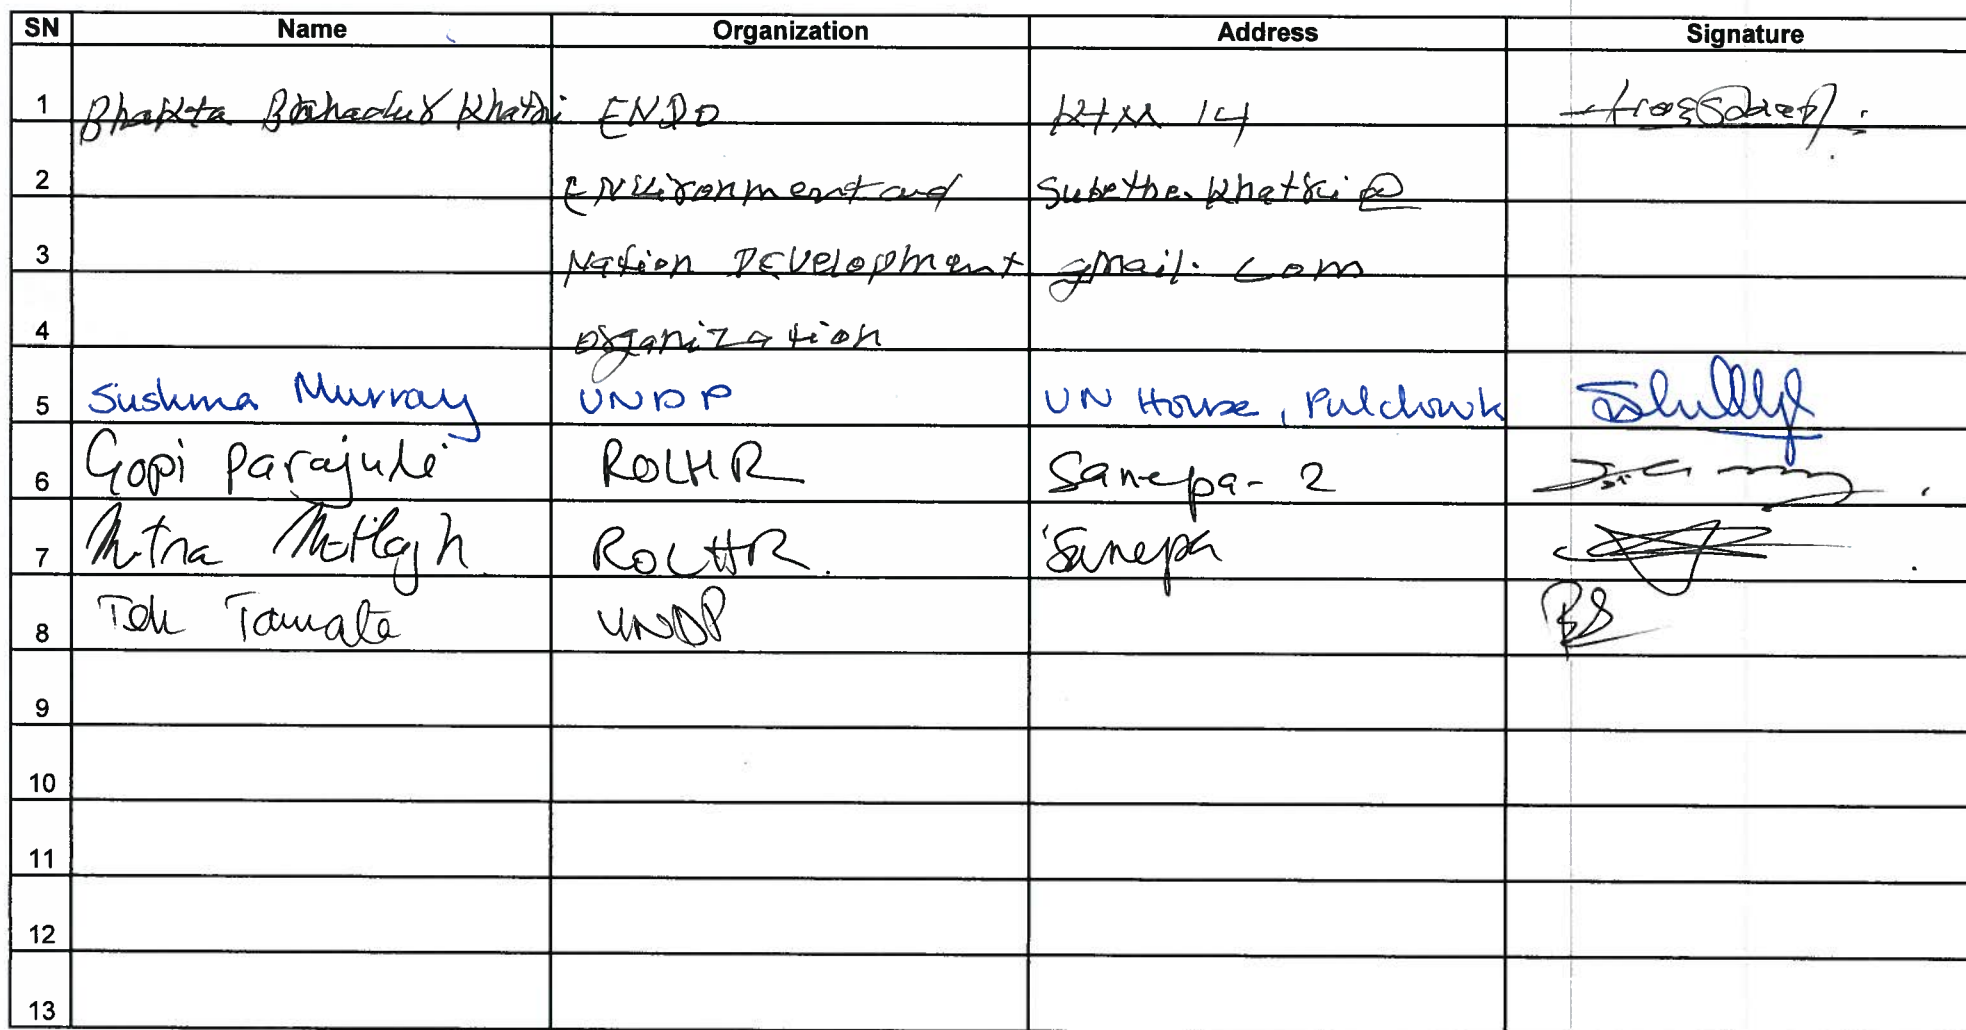 SN Name Organization Address Signature
1 Bhakta Bahadur Khatri ENDO KTM 14
2 Environment and Subetha.khatri@
3 Nation Development gmail.com
4 organization
5 Sushma Murray UNDP UN House, Pulchowk
6 Gopi Parajuli ROLHR Sanepa-2
7 Mitra ROLHR. Sanepa
8 Tek Tamata UNDP
9
10
11
12
13